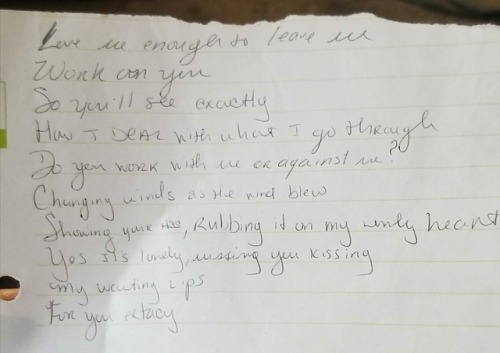 Love me enough to leave me
Work on you
So you'll see exactly
How I DEAL with what I go through
Do you work with me or against me?
Changing winds as the wind blew
Showing your, Rubbing it on my lonely heart
Yes it's lonely, missing you kissing
my wanting Lips
For you extacy